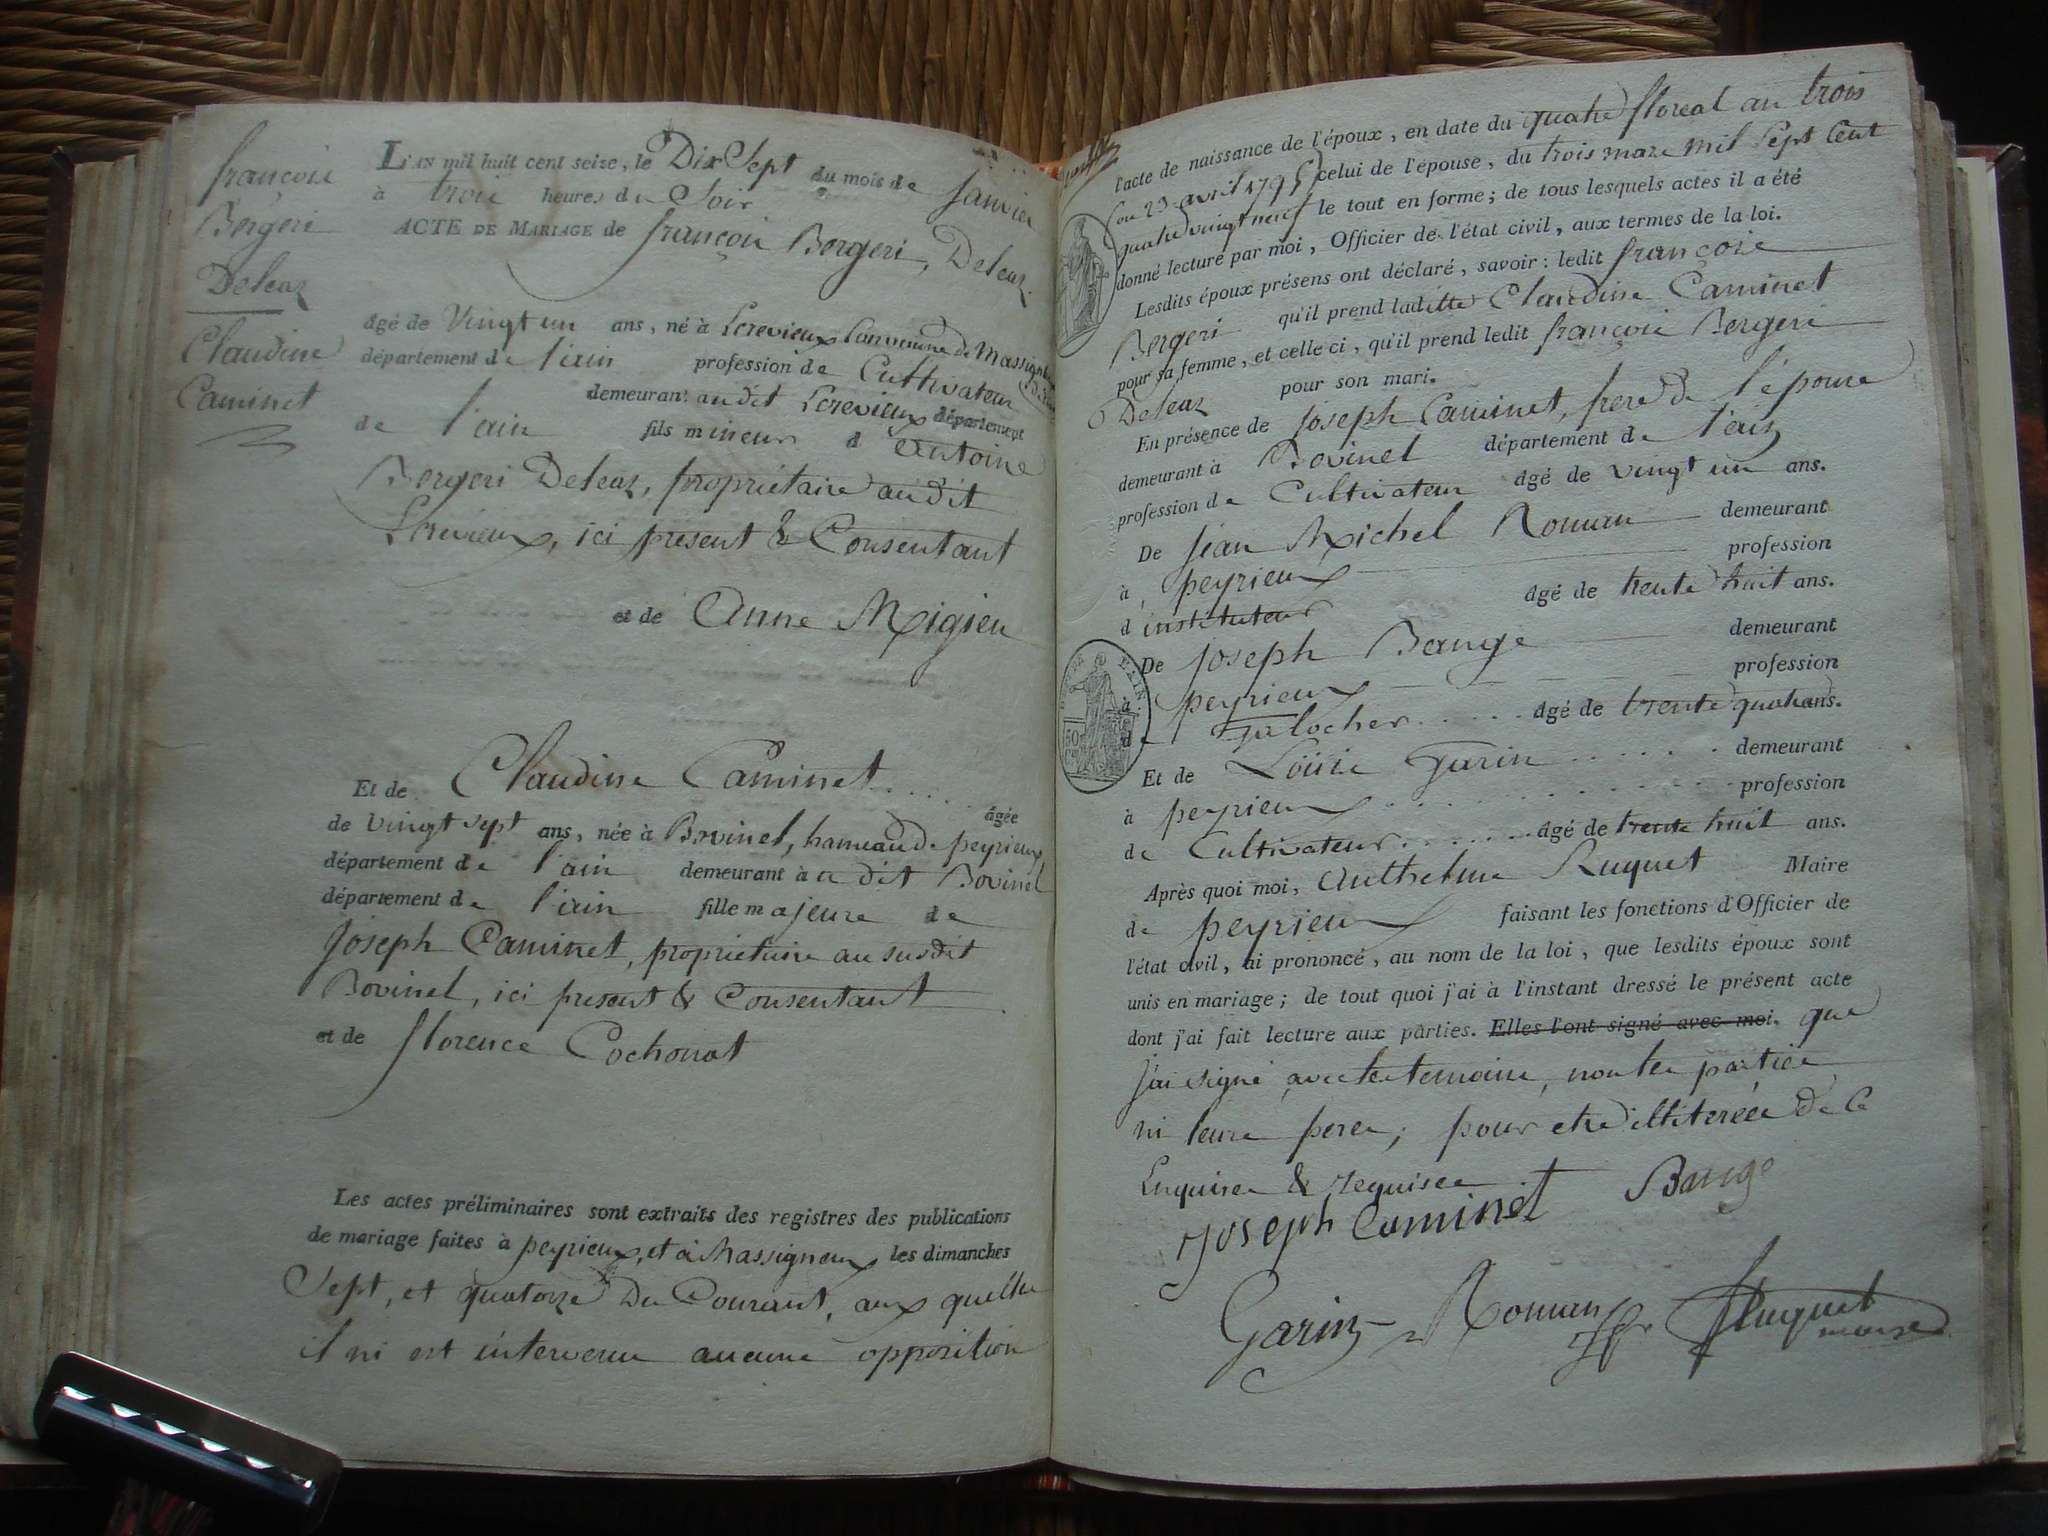 françois
Bergeri
Deleaz
Claudine
Caminet
L'AN mil huit cent seize, le Dix Sept du mois de janvier
à trois heures du Soir
ACTE DE MARIAGE de françois Bergeri, Deleaz
âgé de Vingt un ans, né à Lcrevieux Commune de Massignieu
département de l'ain profession de Cultivateur
demeurant audit Lcrevieux département
de l'ain fils mineur d'Antoine
Bergeri Deleaz, propriétaire audit
Lcrevieux, ici présent & Consentant
et de Anne Migieu
Et de Claudine Caminet âgée
de vingt sept ans, née à Bovinel, hameau de peyrieux
département de l'ain demeurant à u dit Bovinel
département de l'ain fille majeure de
Joseph Caminet, propriétaire au susdit
Bovinel, ici présent & Consentant
et de florence Cochonat
Les actes préliminaires sont extraits des registres des publications
de mariage faites à peyrieux, et à Massigneux les dimanches
Sept, et quatorze Du Courant, aux quelles
il ni est intervenu aucune opposition
l'acte de naissance de l'époux, en date du quatre floreal an trois
(ou 23 avril 1795) celui de l'épouse, du trois mars mil Sept Cent
quatre vingt neuf le tout en forme; de tous lesquels actes il a été
donné lecture par moi, Officier de l'état civil, aux termes de la loi.
Lesdits époux présens ont déclaré, savoir: ledit françois
Bergeri qu'il prend laditte Claudine Caminet
pour sa femme, et celle ci, qu'il prend ledit françois Bergeri
Deleaz pour son mari.
En présence de Joseph Caminet, frere de l'épouse
demeurant à Bovinel département de l'ain
profession de Cultivateur âgé de vingt un ans.
De Jean Michel Roman demeurant
à peyrieux profession
d'instituteur âgé de trente huit ans.
De Joseph Bauge demeurant
à peyrieux profession
de Galocher âgé de trente quatre ans.
Et de Louis Garin demeurant
à peyrieux profession
de Cultivateur âgé de trente huit ans.
Après quoi moi, Anthelme Ruquet Maire
de peyrieux faisant les fonctions d'Officier de
l'état civil, ai prononcé, au nom de la loi, que lesdits époux sont
unis en mariage; de tout quoi j'ai à l'instant dressé le présent acte
dont j'ai fait lecture aux parties. Elles l'ont signé avec moi. que
j'ai signé avec les temoins, non les parties
ni leurs peres; pour etre illiterées de ce
Enquises & requises
Joseph Caminet Bauge
Garin Roman Ruquet
maire